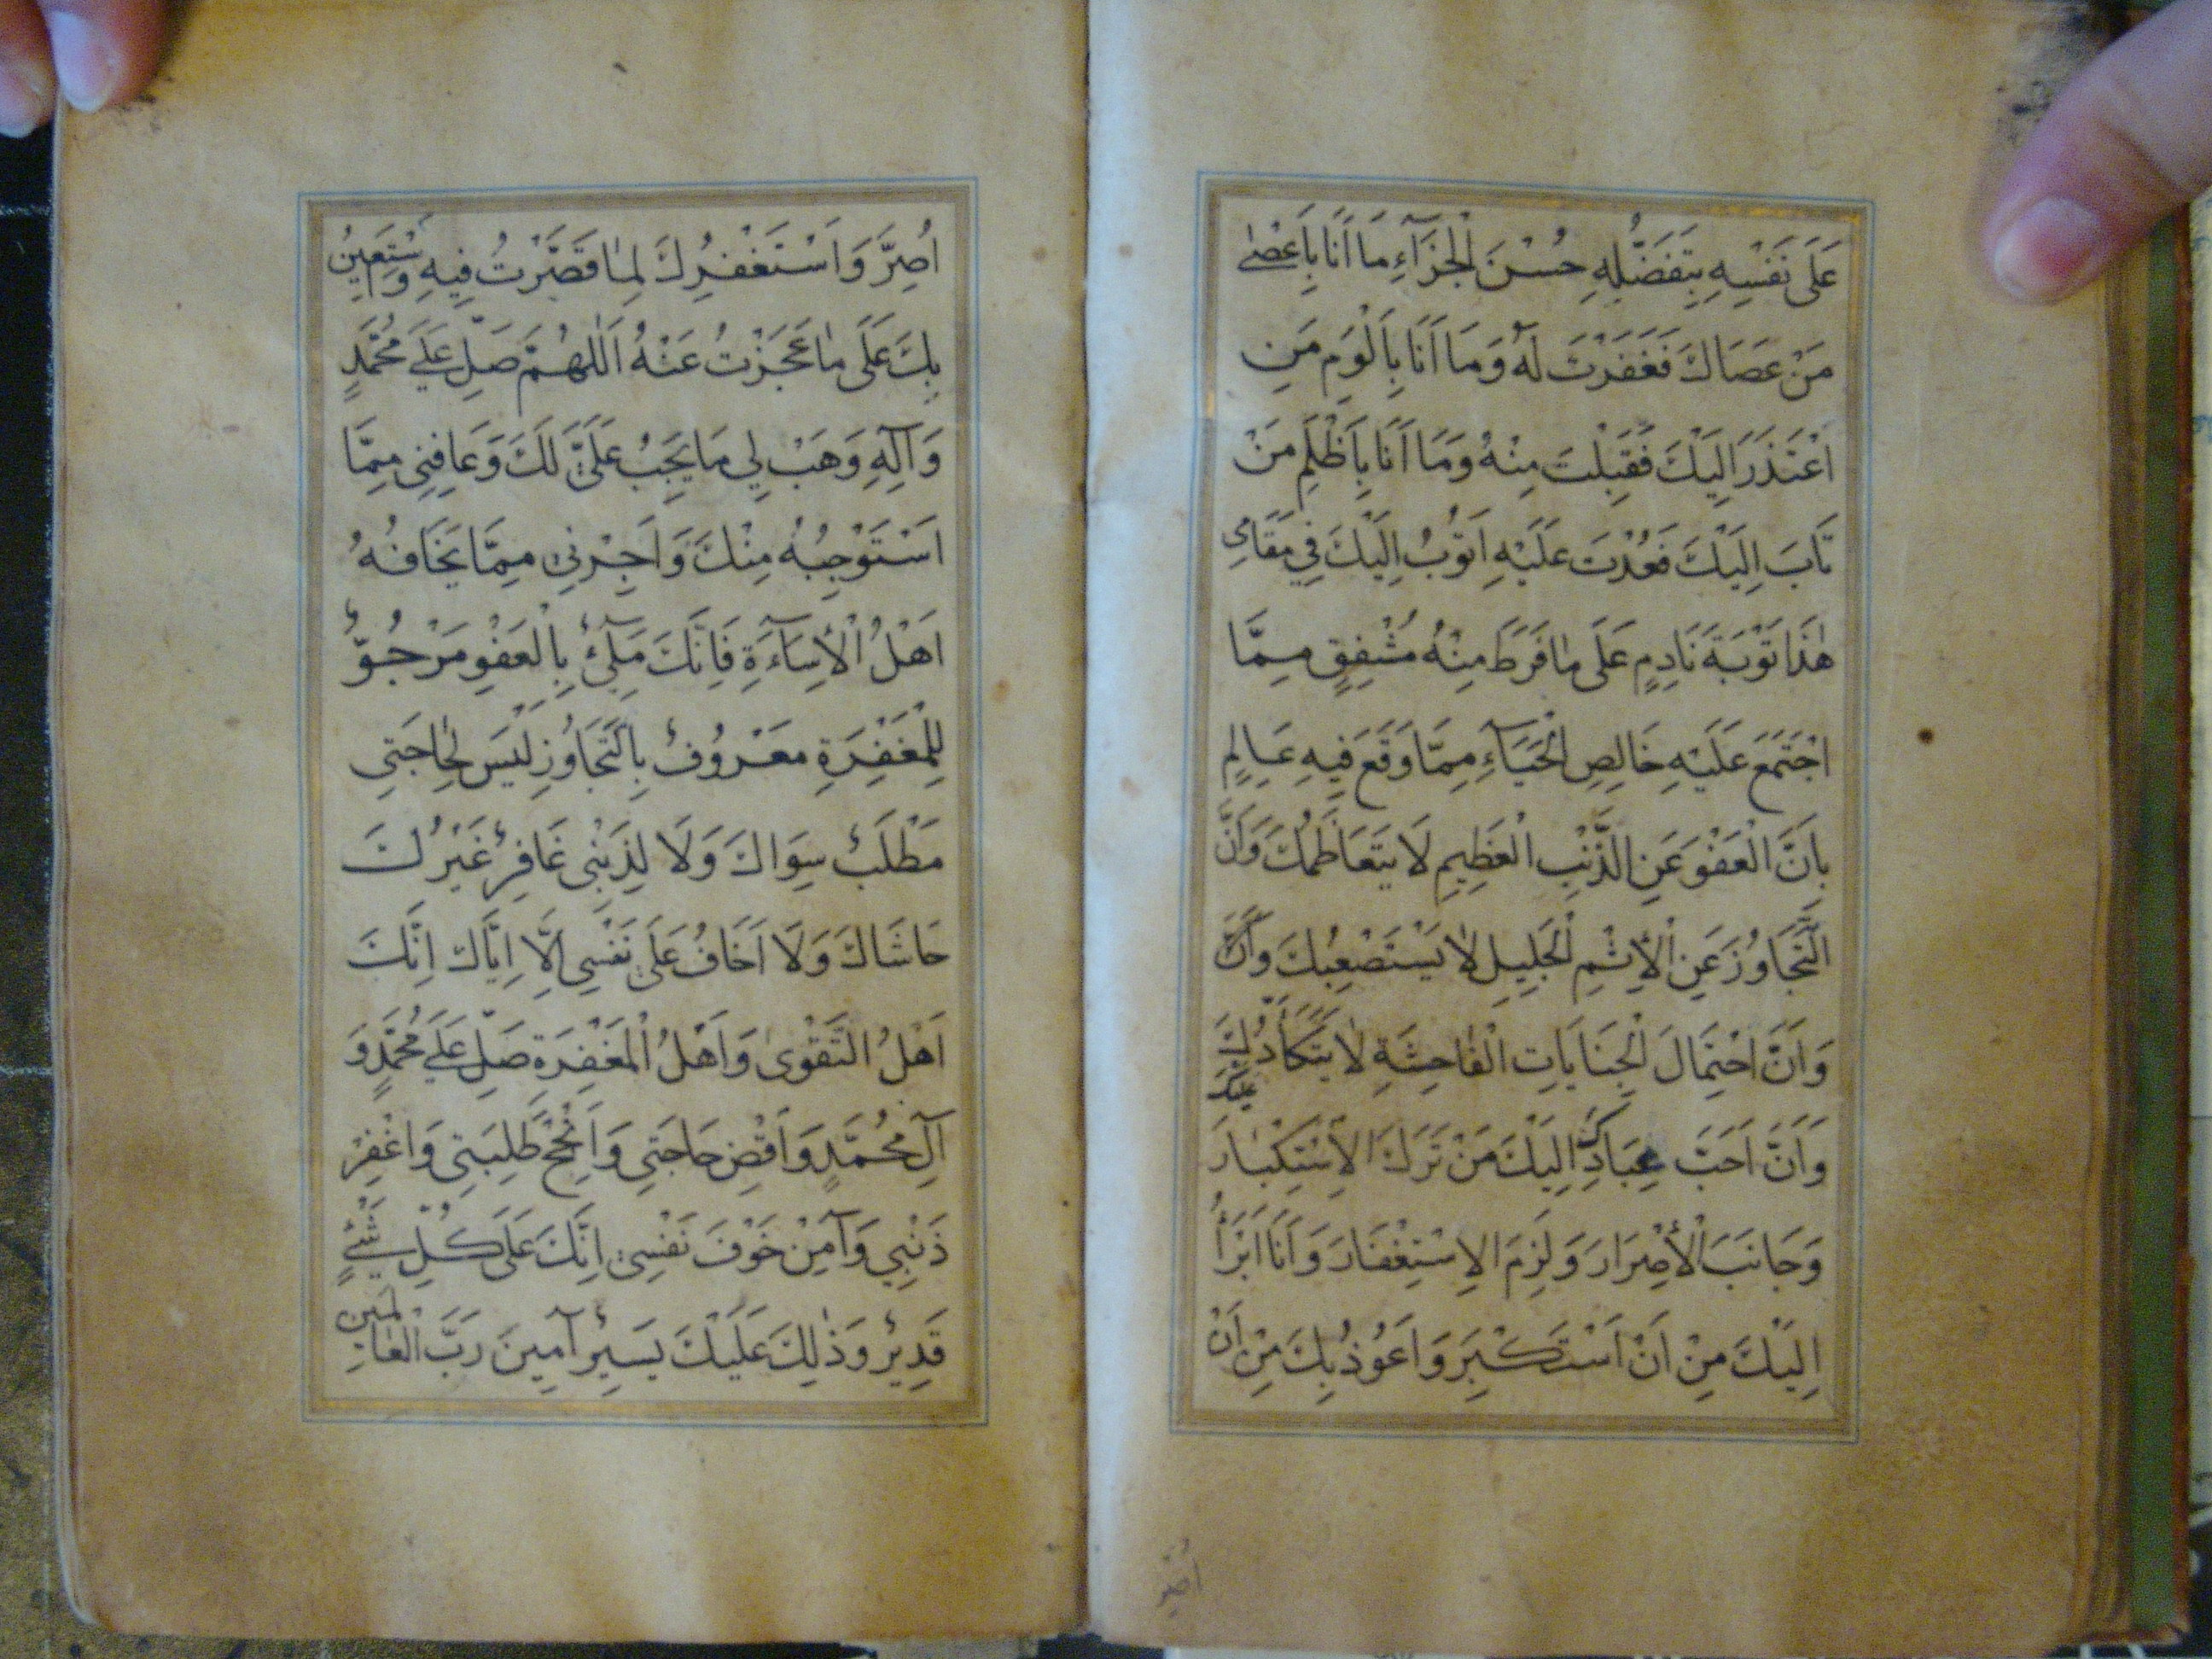 عَلَى نَفْسِهِ بِتَفَضُّلِهِ حُسْنَ الْجَزَآءِ مَا اَنَا بِاَعْصٰى
مَنْ عَصَاكَ فَغَفَرْتَ لَهُ وَمَا اَنَا بِاَلْوَمِ مَنِ
اعْتَذَرَ اِلَيْكَ فَقَبِلْتَ مِنْهُ وَمَا اَنَا بِاَظْلَمِ مَنْ
تَابَ اِلَيْكَ فَعُدْتَ عَلَيْهِ اَتُوْبُ اِلَيْكَ فِي مَقَامِى
هٰذَا تَوْبَةَ نَادِمٍ عَلَى مٰا فَرَطَ مِنْهُ مُشْفِقٍ مِمَّا
اجْتَمَعَ عَلَيْهِ خَالِصِ الْحَيَآءِ مِمَّا وَقَعَ فِيهِ عَالِمٍ
بِاَنَّ الْعَفْوَ عَنِ الذَّنْبِ الْعَظِيمِ لَا يَتَعَاظَمُكَ وَاَنَّ
التَّجَاوُزَ عَنِ الْاِثْمِ الْجَلِيلِ لٰا يَسْتَصْعِبُكَ وَاَنَّ
وَاَنَّ احْتِمَالَ الْجِنَايَاتِ الْفٰاحِشَةِ لٰا يَتَكَأَّدُكَ
وَاَنَّ اَحَبَّ عِبَادِكَ اِلَيْكَ مَنْ تَرَكَ الْاِسْتِكْبٰارَ عَلَيْكَ
وَجَانَبَ الْاِصْرَارَ وَلَزِمَ الِاسْتِغْفَارَ وَاَنَا اَبْرَأُ
اِلَيْكَ مِنْ اَنْ اَسْتَكْبِرَ وَاَعُوْذُ بِكَ مِنْ اَنْ
اُصِرَّ
اُصِرَّ وَاَسْتَغْفِرُكَ لِمٰا قَصَّرْتُ فِيهِ وَاَسْتَعِينُ
بِكَ عَلَى مٰا عَجَزْتُ عَنْهُ اَللّٰهُمَّ صَلِّ عَلٰى مُحَمَّدٍ
وَآلِهِ وَهَبْ لِي مَا يَجِبُ عَلَيَّ لَكَ وَعَافِنِى مِمَّا
اَسْتَوْجِبُهُ مِنْكَ وَاَجِرْنِى مِمَّا يَخَافُهُ
اَهْلُ الْاِسَآءَةِ فَاِنَّكَ مَلِىٌٔ بِالْعَفْوِ مَرْجُوٌّ
لِلْمَغْفِرَةِ مَعْرُوْفٌ بِالتَّجَاوُزِ لَيْسَ لِحٰاجَتِى
مَطْلَبٌ سِوَاكَ وَلَا لِذَنْبِى غَافِرٌ غَيْرُكَ
حَاشَاكَ وَلَا اَخَافُ عَلَى نَفْسِى اِلَّا اِيَّاكَ اِنَّكَ
اَهْلُ التَّقْوىٰ وَاَهْلُ الْمَغْفِرَةِ صَلِّ عَلٰى مُحَمَّدٍ وَ
آلِ مُحَمَّدٍ وَاقْضِ حَاجَتِى وَاَنْجِحْ طَلِبَتِى وَاغْفِرْ
ذَنْبِي وَآمِنْ خَوْفَ نَفْسِى اِنَّكَ عَلَى كُلِّ شَيْءٍ
قَدِيرٌ وَذٰلِكَ عَلَيْكَ يَسِيرٌ آمِينَ رَبَّ الْعٰالَمِينَ